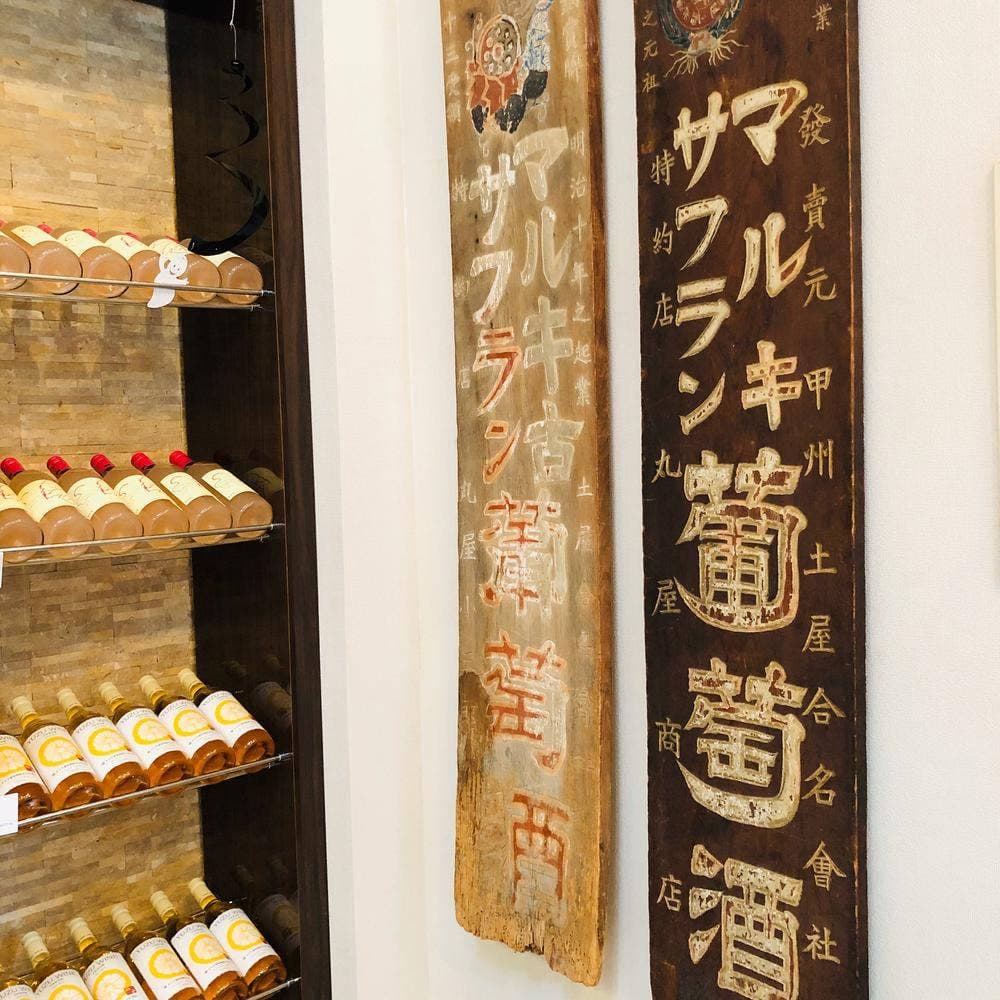 業
發賣元 甲州土屋合名會社
マルキ
サフラン
葡萄酒
之元祖
特約店 丸屋商店
明治十年之起業 土屋合
マルキ吉
サフラン
葡萄酒
特約店 丸屋
YUZU WINE